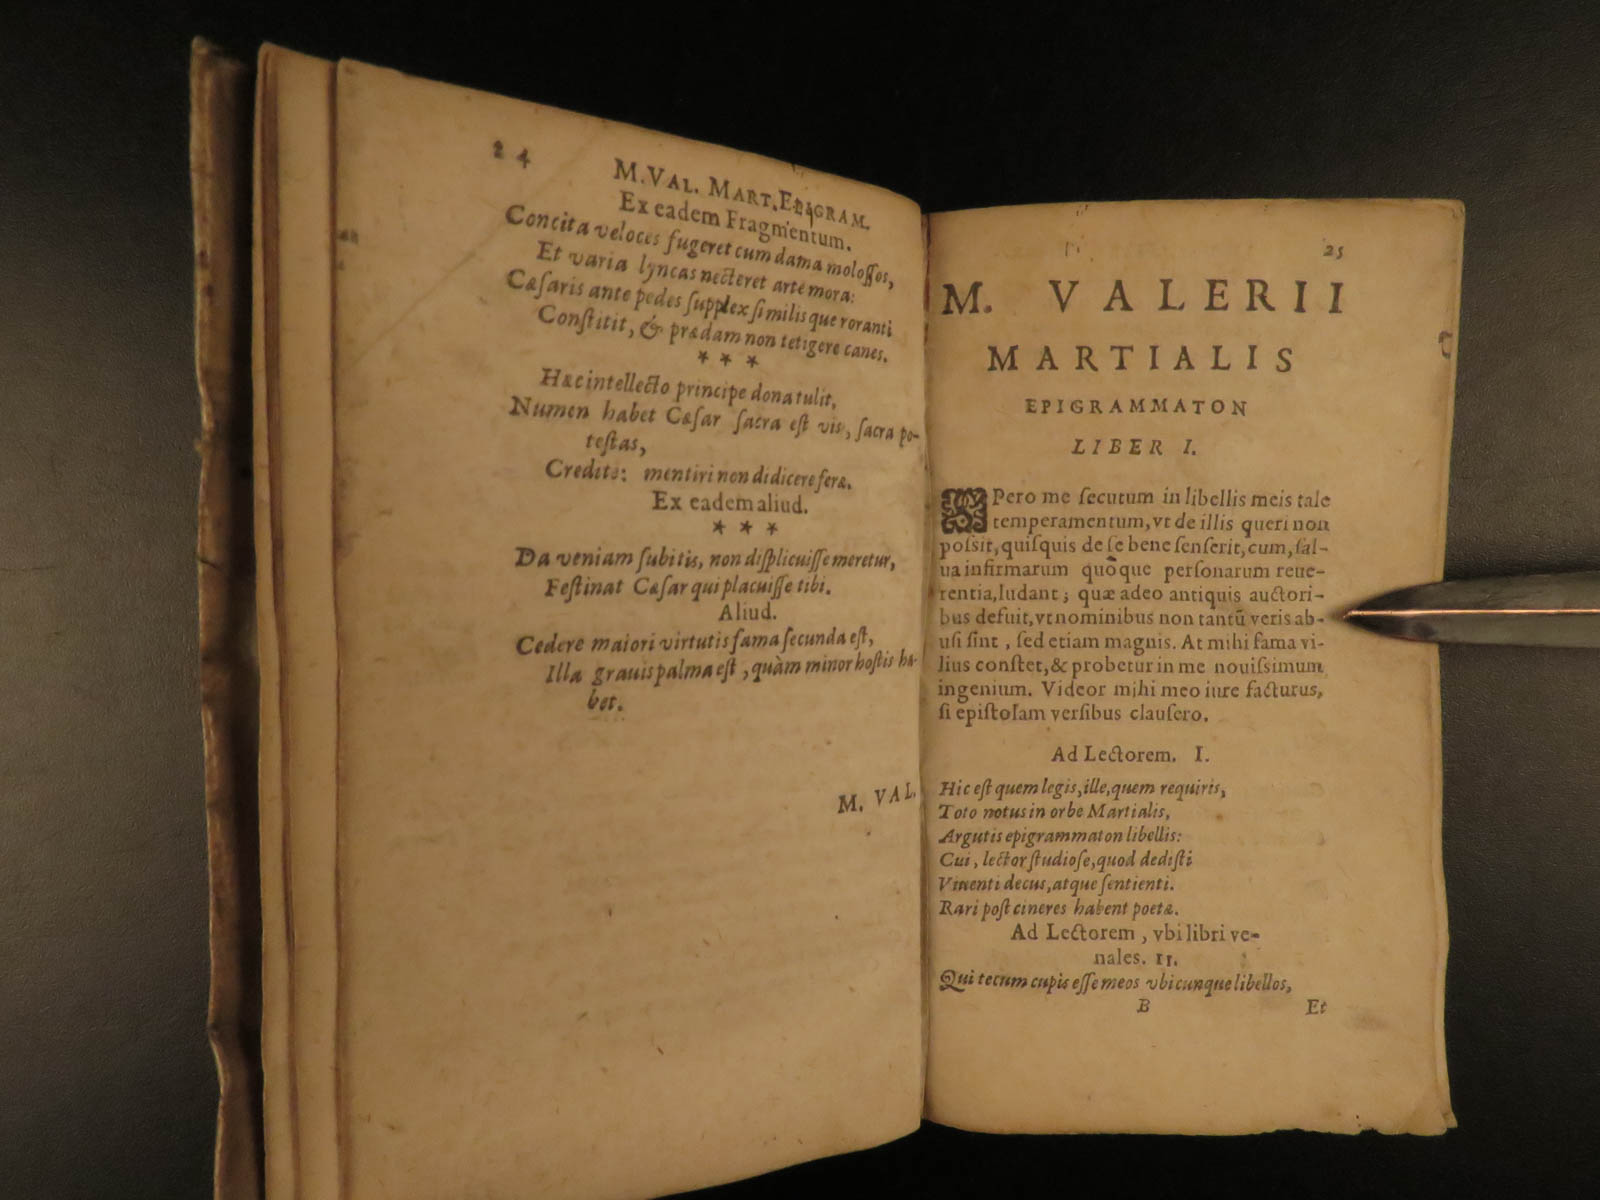 24
M. VAL. MART. EPIGRAM.
Ex eadem Fragmentum.
Concita veloces fugeret cum dama molossos,
Et varia lyncas necteret arte mora:
Cæsaris ante pedes supplex similisque roranti
Constitit, & prædam non tetigere canes.
* * *
Hæc intellecto principe dona tulit.
Numen habet Cæsar sacra est vis, sacra po-
testas,
Credite: mentiri non didicere feræ.
Ex eadem aliud.
* * *
Da veniam subitis, non displicuisse meretur,
Festinat Cæsar qui placuisse tibi.
Aliud.
Cedere maiori virtutis fama secunda est,
Illa grauis palma est, quàm minor hostis ha-
bet.
M. VAL.
25
M. VALERII
MARTIALIS
EPIGRAMMATON
LIBER I.
SPero me secutum in libellis meis tale
temperamentum, vt de illis queri non
possit, quisquis de se bene senserit, cum, sal-
ua infirmarum quoque personarum reue-
rentia, ludant; quæ adeo antiquis auctori-
bus defuit, vt nominibus non tantũ veris ab-
usi sint, sed etiam magnis. At mihi fama vi-
lius constet, & probetur in me nouissimum
ingenium. Videor mihi meo iure facturus,
si epistolam versibus clausero.
Ad Lectorem. I.
Hic est quem legis, ille, quem requiris,
Toto notus in orbe Martialis,
Argutis epigrammaton libellis:
Cui, lector studiose, quod dedisti
Viuenti decus, atque sentienti.
Rari post cineres habent poetæ.
Ad Lectorem, vbi libri ve-
nales. II.
Qui tecum cupis esse meos vbicunque libellos,
B
Et